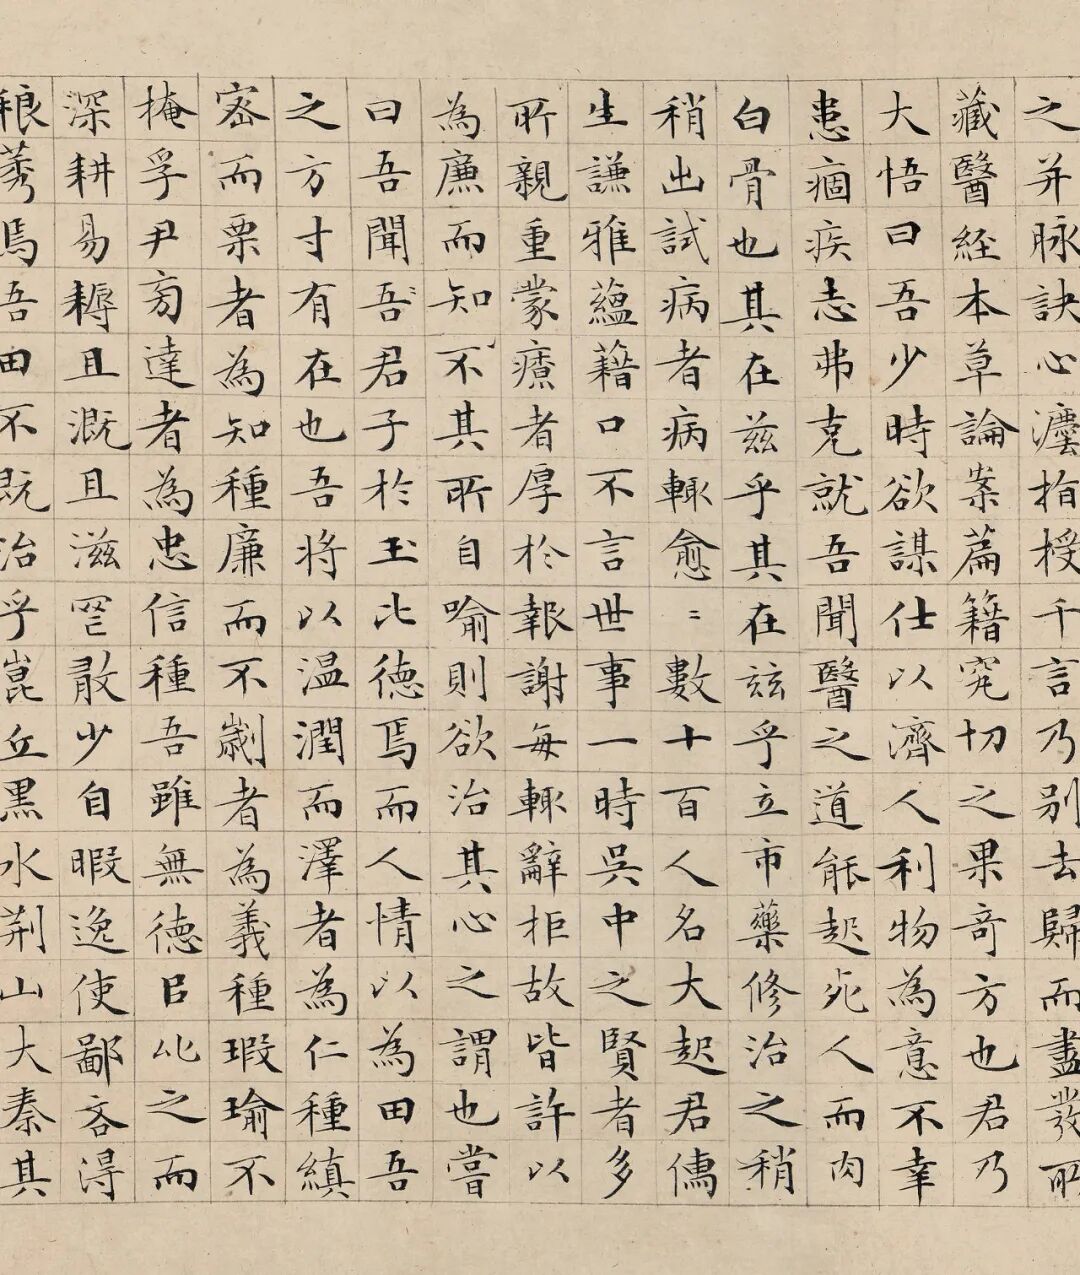 之并脉訣心灋指授千言乃别去歸而盡發所
藏醫經本草論案篇籍究切之果奇方也君乃
大悟曰吾少時欲謀仕以濟人利物為意不幸
患痼疾志弗克就吾聞醫之道能起死人而肉
白骨也其在兹乎其在兹乎立市藥修治之稍
稍出試病者病輒愈〻數十百人名大起君儁
生謙雅蘊藉口不言世事一時吳中之賢者多
所親重蒙療者厚於報謝每輒辭拒故皆許以
為廉而知不其所自喻則欲治其心之謂也嘗
曰吾聞吾君子於玉比德焉而人情以為田吾
之方寸有在也吾將以温潤而澤者為仁種縝
密而栗者為知種廉而不劌者為義種瑕瑜不
掩孚尹旁達者為忠信種吾雖無德㠯此之而
深耕易耨且溉且滋罔敢少自暇逸使鄙吝得
稂莠焉吾田不既治乎崑丘黑水荆山大秦其